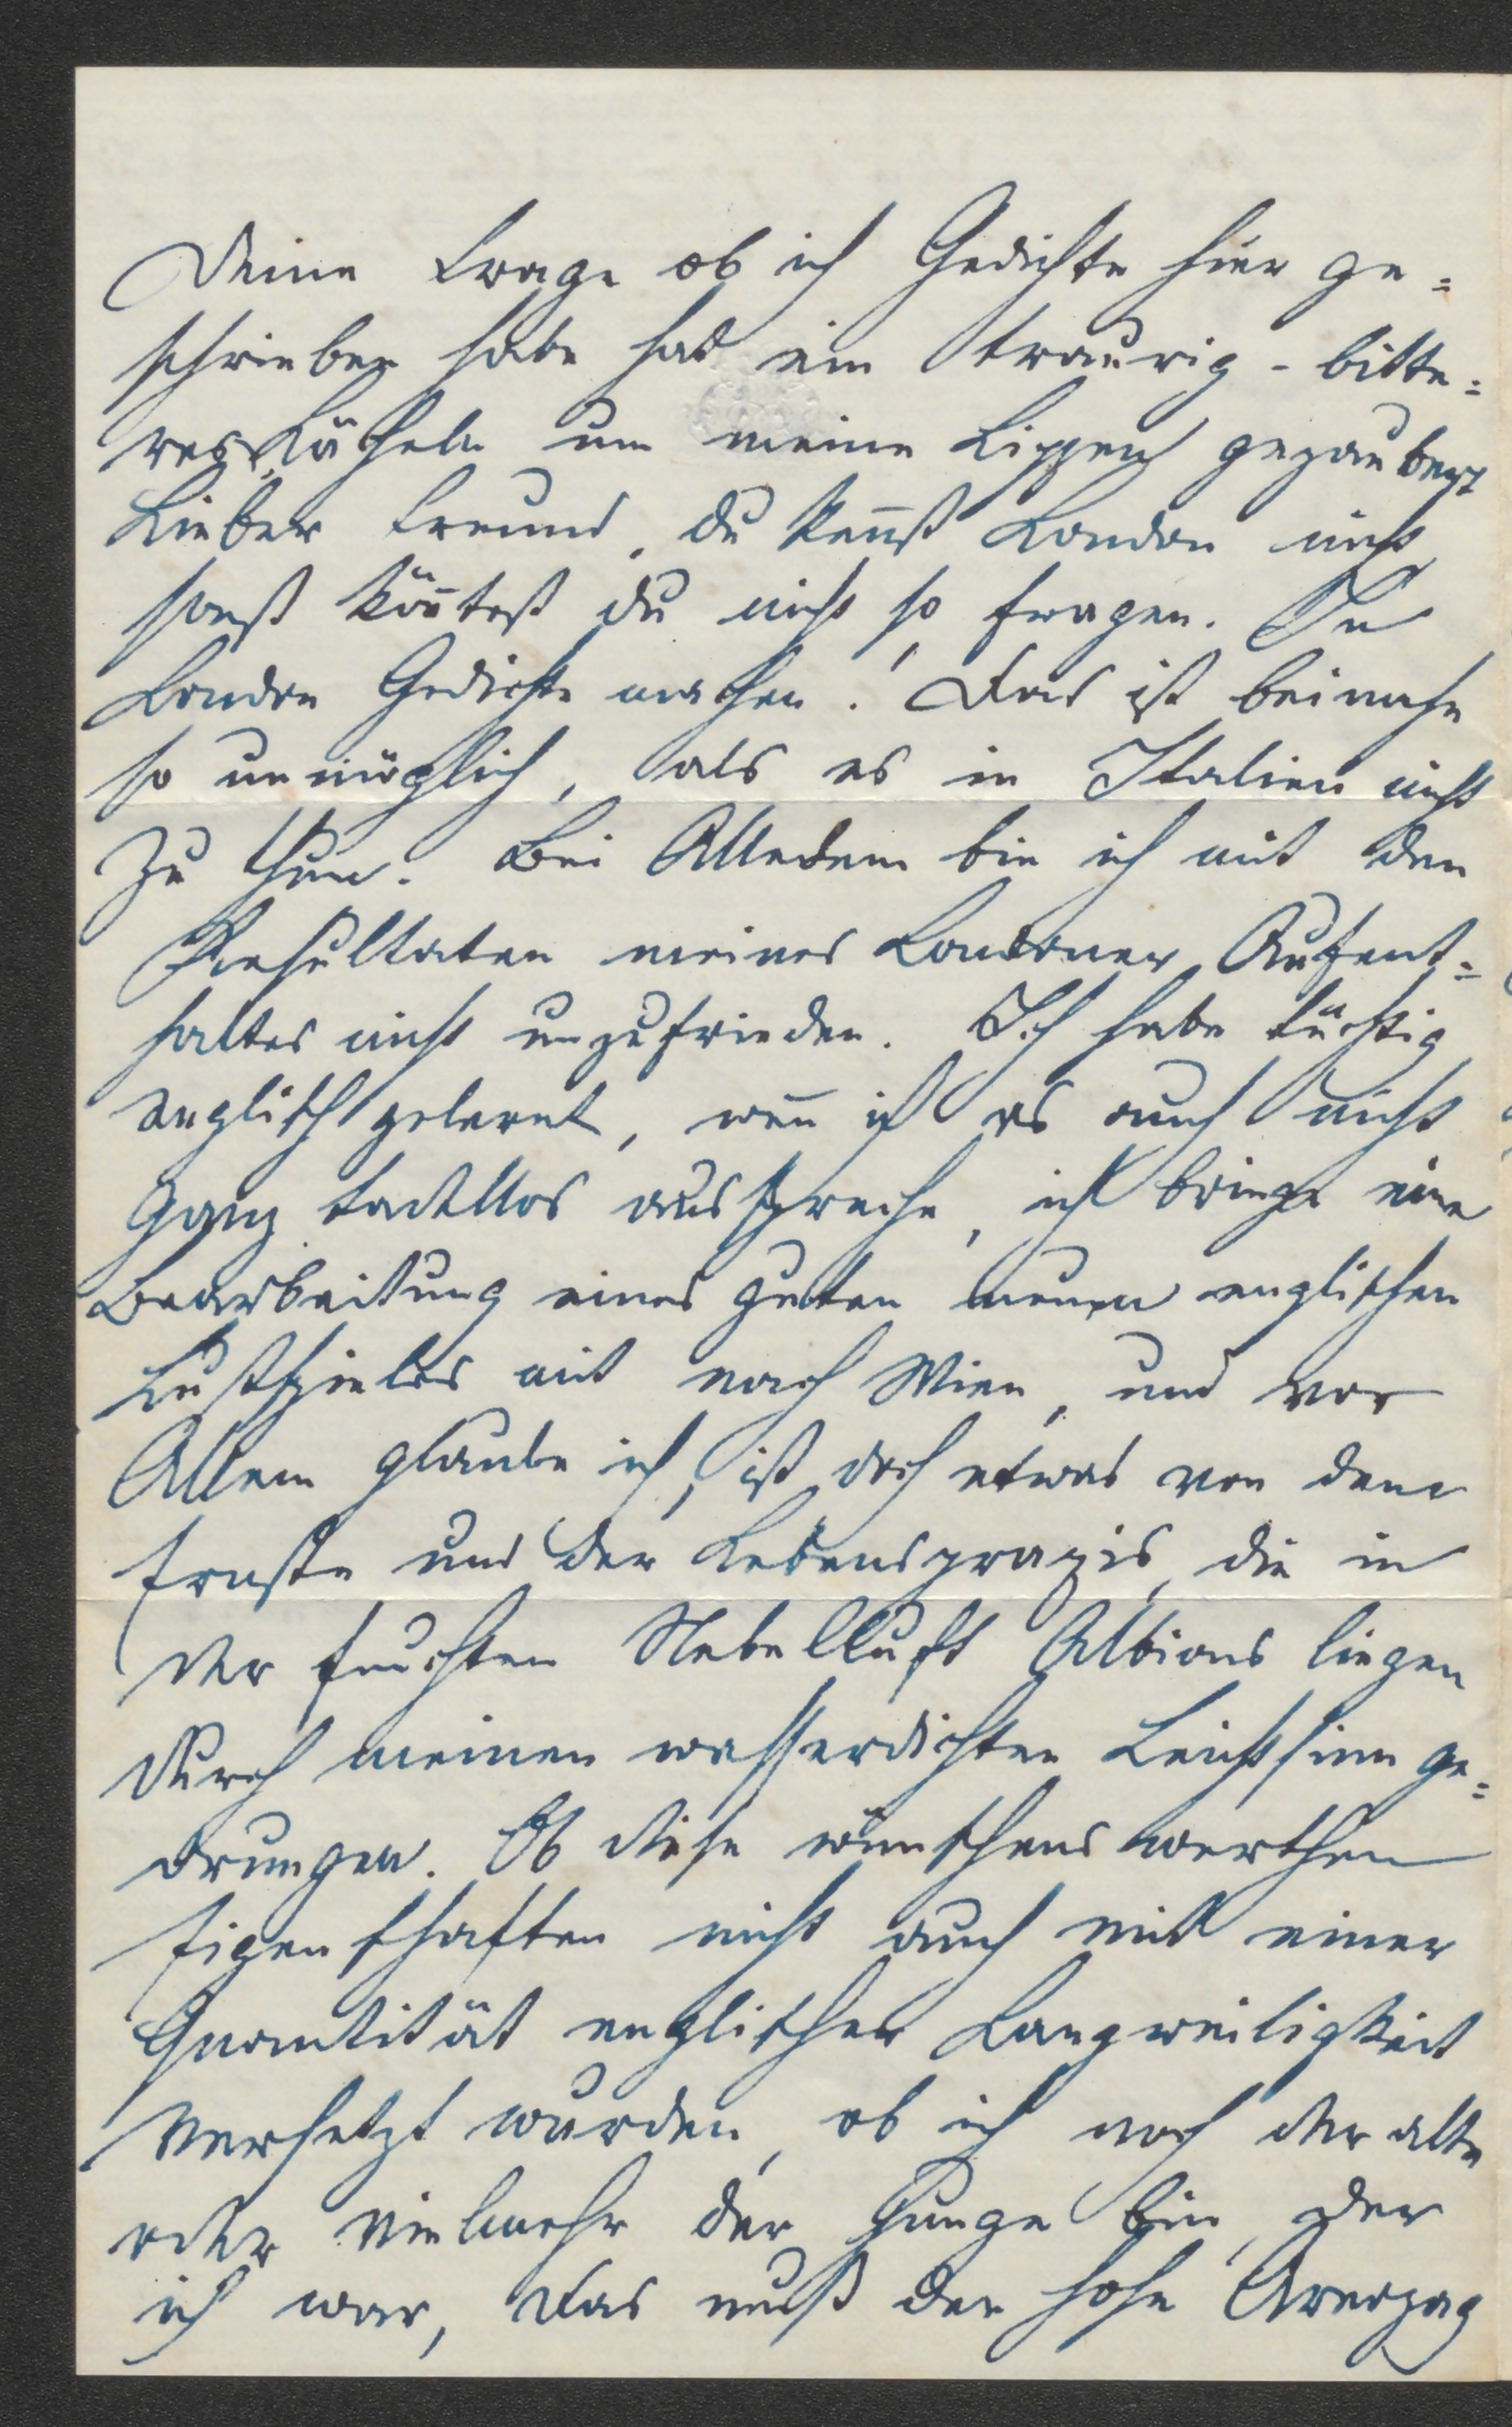 Deine Frage ob ich Gedichte hier ge=
schrieben habe hat ein traurig-bitte=
res Lächeln um meine Lippen gezaubert
Lieber Freund, du kenn̄st London nicht
sonst kön̄test du nicht so fragen. In
London Gedichte machen! Das ist beinahe
so unmöglich, als es in Italien nicht
zu thun. Bei Alledem bin ich mit den
Resultaten meines Londoner Aufent=
haltes nicht unzufrieden. Ich habe tüchtig
englisch gelernt, wen̄ ich es auch nicht
ganz tadellos ausspreche, ich bringe eine
Bearbeitung eines guten neuen englischen
Lustspieles mit nach Wien, und vor
Allem glaube ich, ist doch etwas von dem
Ernste und der Lebenspraxis, die in
der feuchten Nebelluft Albions liegen
durch meinen wasserdichten Leichtsinn ge=
drungen. Ob diese wünschenswerthen
Eigenschaften nicht auch mit einer
Quantität englischer Langweiligkeit
versetzt wurden, ob ich noch der alte
oder vielmehr der Junge bin, der
ich war, das muß der hohe